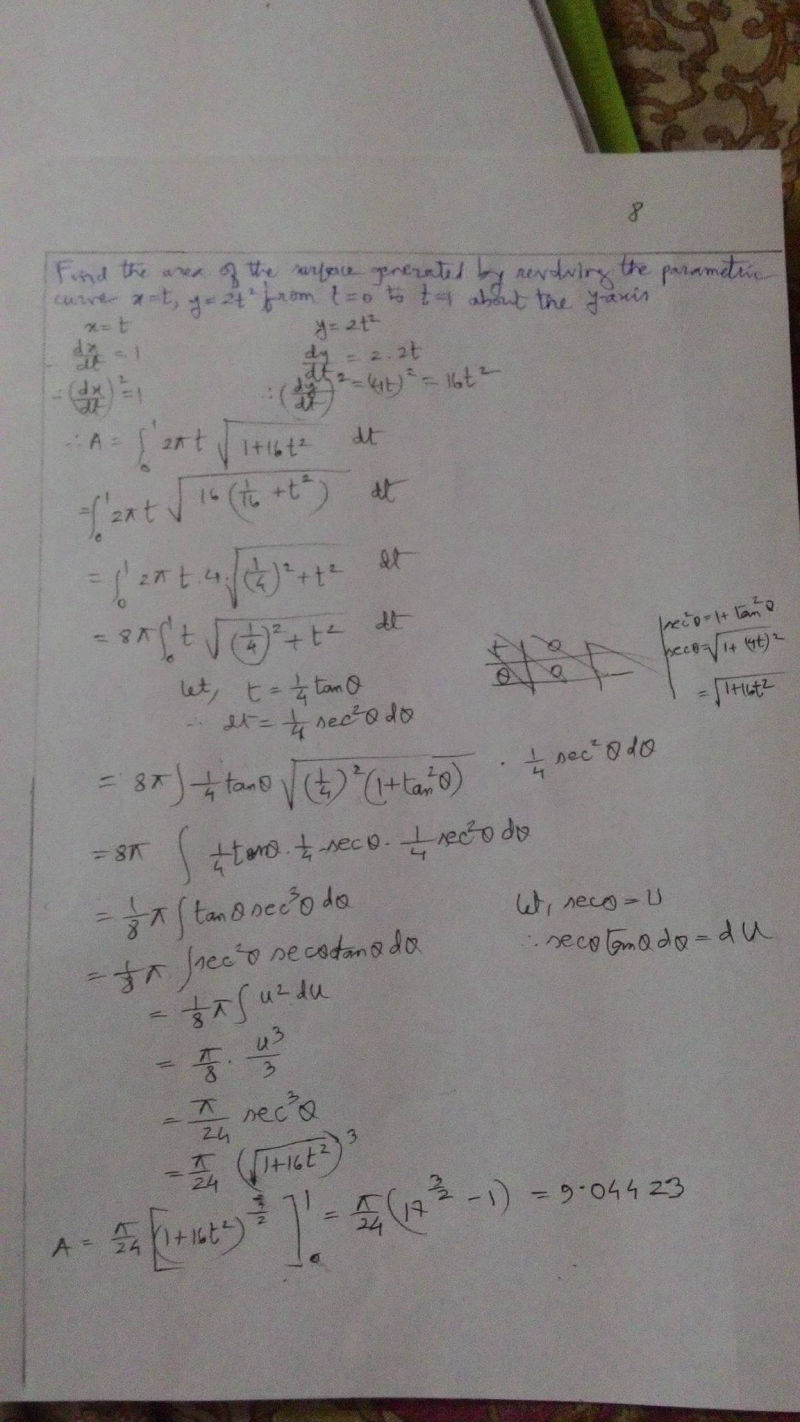 8
Find the area of the surface generated by revolving the parametric
curve x=t, y=2t² from t=0 to t=1 about the y-axis
x=t y=2t²
dx/dt = 1 dy/dt = 2.2t
∴(dx/dt)²=1 ∴(dy/dt)²=(4t)²=16t²
∴A = ∫₀¹ 2πt √(1+16t²) dt
=∫₀¹ 2πt √(16(1/16+t²)) dt
= ∫₀¹ 2πt.4.√((1/4)²+t²) dt
= 8π∫₀¹ t √((1/4)²+t²) dt
sec²θ=1+tan²θ
secθ=√(1+(4t)²)
=√(1+16t²)
let, t = 1/4 tanθ
∴ dt = 1/4 sec²θ dθ
= 8π∫ 1/4 tanθ √((1/4)²(1+tan²θ)) . 1/4 sec²θ dθ
=8π ∫ 1/4 tanθ. 1/4 secθ. 1/4 sec²θ dθ
= 1/8 π∫tanθ sec³θ dθ let, secθ=U
= 1/8 π. ∫sec²θ secθtanθ dθ ∴secθtanθdθ=dU
= 1/8 π∫ u² du
= π/8 . u³/3
= π/24 sec³θ
= π/24 (√(1+16t²))³
A = π/24 [(1+16t²)^(3/2)]₀¹ = π/24 (17^(3/2) - 1) = 9.04423